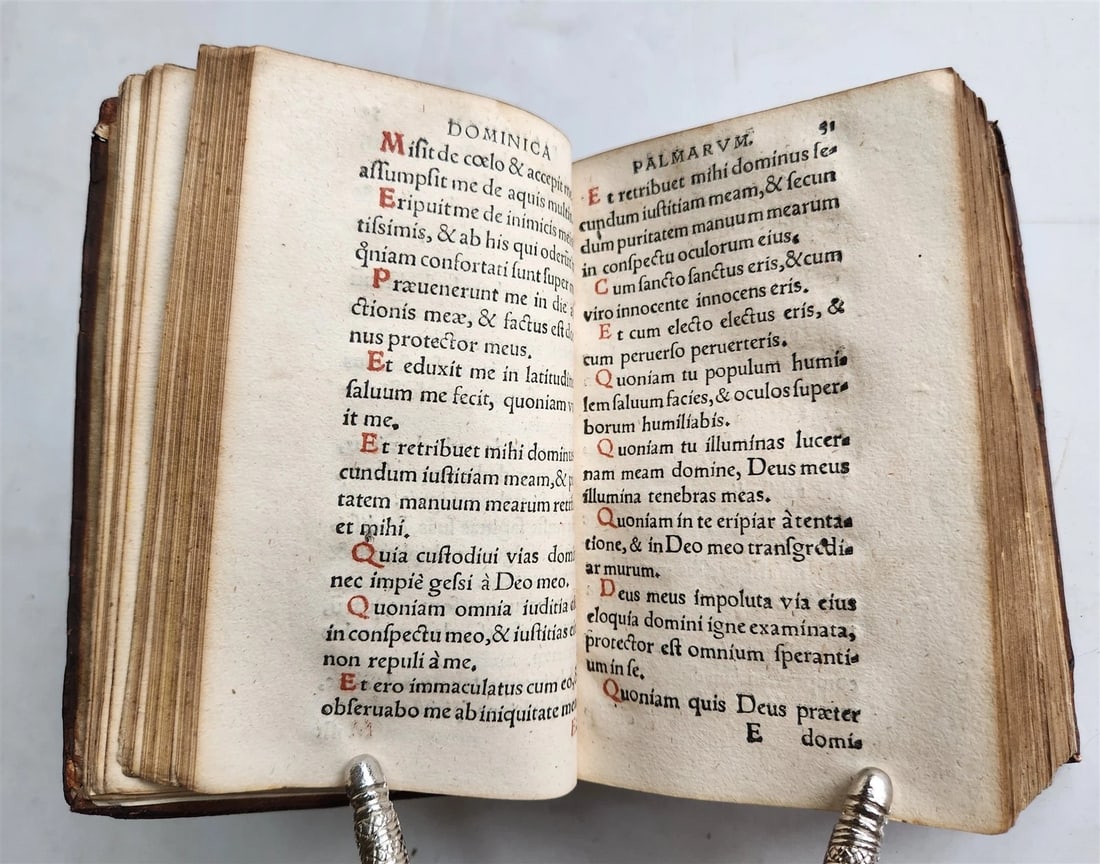 DOMINICA
Miſit de cœlo & accepit me
aſſumpſit me de aquis multis
Eripuit me de inimicis meis
tiſsimis, & ab his qui oderūt
qm̄niam confortati ſunt ſuper m
Præuenerunt me in die a
ctionis meæ, & factus eſt do
nus protector meus.
Et eduxit me in latitudin
ſaluum me fecit, quoniam v
it me.
Et retribuet mihi dominus
cundum iuſtitiam meam, & p
tatem manuum mearum retri
et mihi.
Quia cuſtodiui vias domi
nec impiè geſsi à Deo meo.
Quoniam omnia iuditia ei
in conſpectu meo, & iuſtitias e
non repuli à me.
Et ero immaculatus cum eo, &
obſeruabo me ab iniquitate me
PALMARVM. 31
Et retribuet mihi dominus ſe-
cundum iuſtitiam meam, & ſecun
dum puritatem manuum mearum
in conſpectu oculorum eius,
Cum ſancto ſanctus eris, & cum
viro innocente innocens eris.
Et cum electo electus eris, &
cum peruerſo peruerteris.
Quoniam tu populum humi-
lem ſaluum facies, & oculos ſuper-
borum humiliabis.
Quoniam tu illuminas lucer-
nam meam domine, Deus meus
illumina tenebras meas.
Quoniam in te eripiar à tenta-
tione, & in Deo meo tranſgredi-
ar murum.
Deus meus impoluta via eius
eloquia domini igne examinata,
protector eſt omnium ſperanti-
um in ſe.
Quoniam quis Deus præter
E domi-